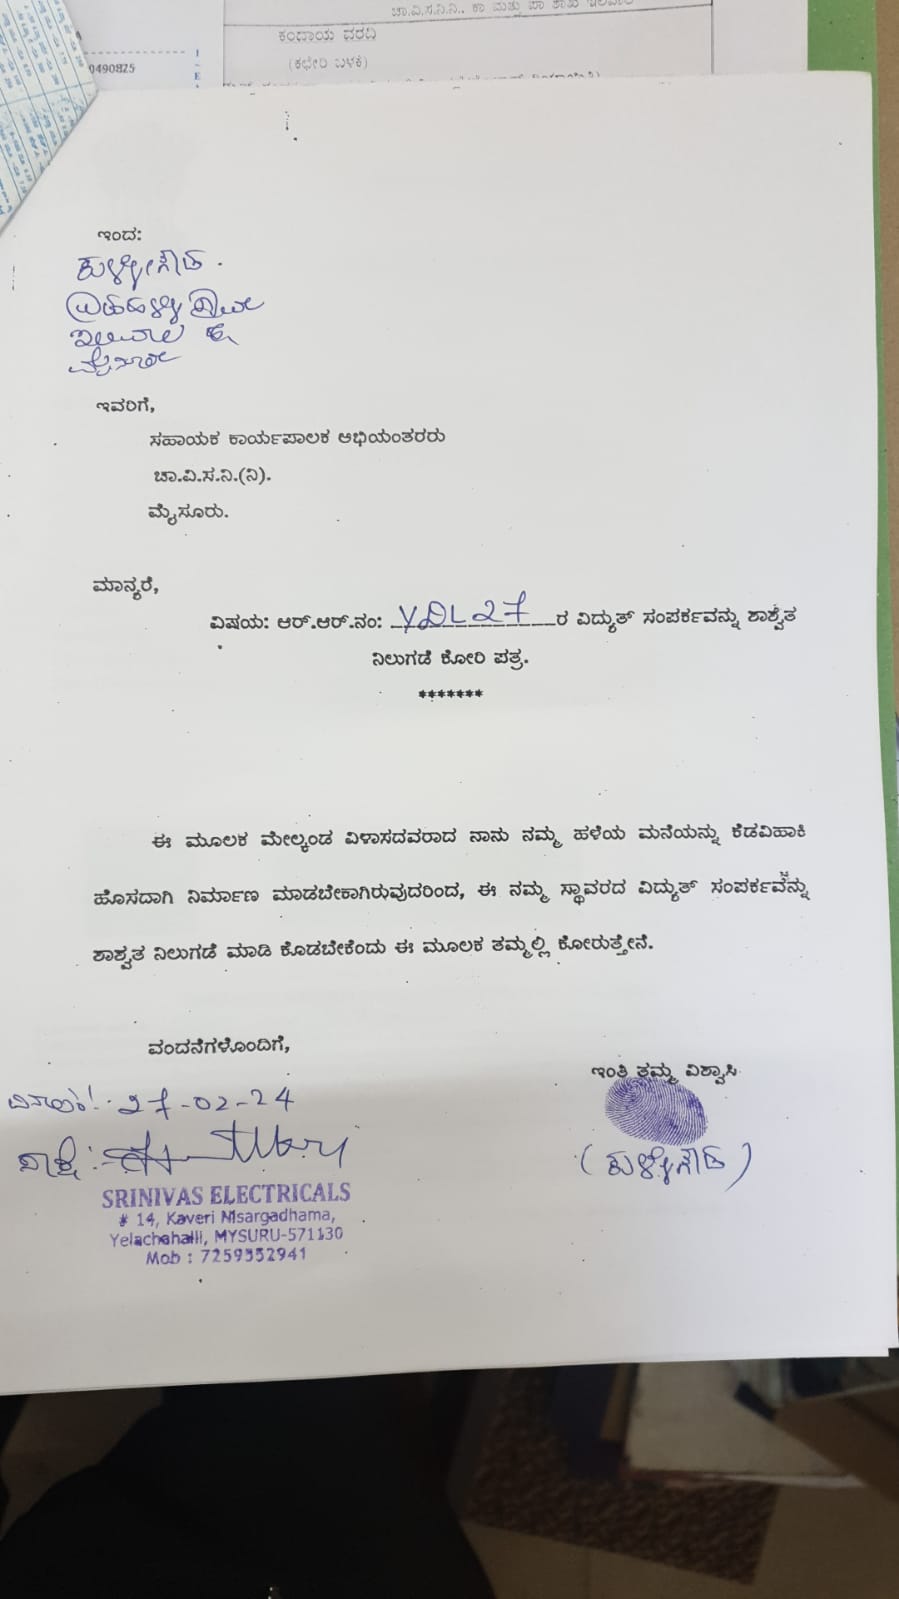 ಚಾ.ವಿ.ಸ.ನಿ.ನಿ..
ಕಂದಾಯ ವರದಿ
(ಕಛೇರಿ ಬಳಕೆ)
0490825
ಇಂದ:
ಕುಳ್ಳೇಗೌಡ.
ಮೈಸೂರು
ಇವರಿಗೆ,
ಸಹಾಯಕ ಕಾರ್ಯಪಾಲಕ ಅಭಿಯಂತರರು
ಚಾ.ವಿ.ಸ.ನಿ.(ನಿ).
ಮೈಸೂರು.
ಮಾನ್ಯರೆ,
ವಿಷಯ: ಆರ್.ಆರ್.ನಂ: YDL27 ರ ವಿದ್ಯುತ್ ಸಂಪರ್ಕವನ್ನು ಶಾಶ್ವತ
ನಿಲುಗಡೆ ಕೋರಿ ಪತ್ರ.
*******
ಈ ಮೂಲಕ ಮೇಲ್ಕಂಡ ವಿಳಾಸದವರಾದ ನಾನು ನಮ್ಮ ಹಳೆಯ ಮನೆಯನ್ನು ಕೆಡವಿಹಾಕಿ
ಹೊಸದಾಗಿ ನಿರ್ಮಾಣ ಮಾಡಬೇಕಾಗಿರುವುದರಿಂದ, ಈ ನಮ್ಮ ಸ್ಥಾವರದ ವಿದ್ಯುತ್ ಸಂಪರ್ಕವನ್ನು
ಶಾಶ್ವತ ನಿಲುಗಡೆ ಮಾಡಿ ಕೊಡಬೇಕೆಂದು ಈ ಮೂಲಕ ತಮ್ಮಲ್ಲಿ ಕೋರುತ್ತೇನೆ.
ವಂದನೆಗಳೊಂದಿಗೆ,
ಇಂತಿ ತಮ್ಮ ವಿಶ್ವಾಸಿ
ದಿನಾಂಕ: 27-02-24
ಸಾಕ್ಷಿ:
(ಕುಳ್ಳೇಗೌಡ)
SRINIVAS ELECTRICALS
# 14, Kaveri Nisargadhama,
Yelachahalli, MYSURU-571130
Mob : 7259552941